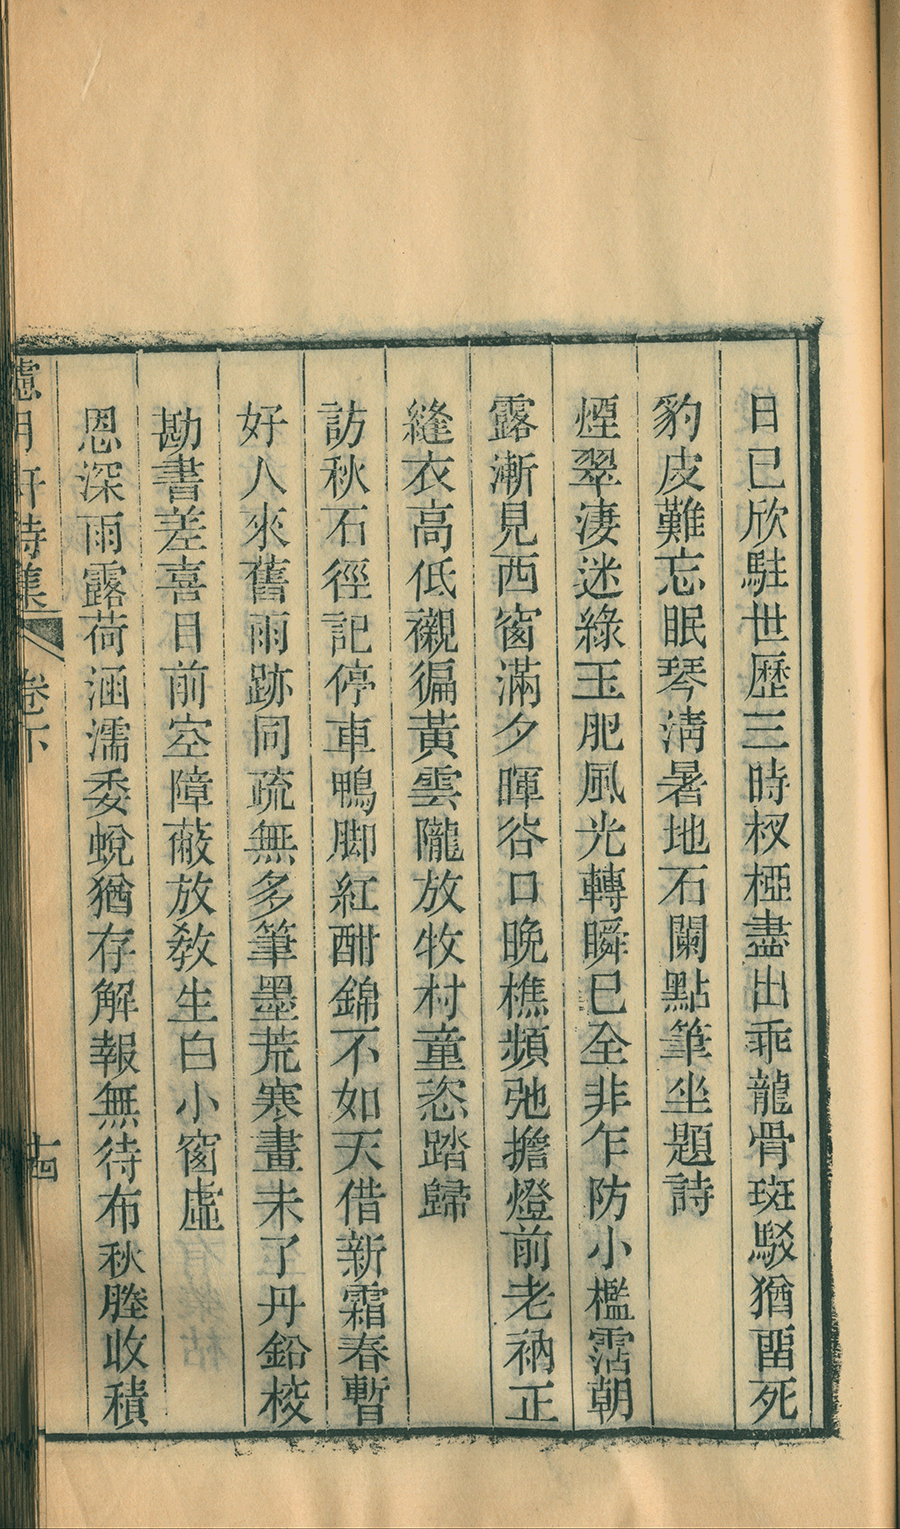 日已欣駐世歷三時杈椏盡出乖龍骨斑駁猶畱死
豹皮難忘眠琴淸暑地石闌點筆坐題詩
煙翠淒迷綠玉肥風光轉瞬巳全非乍防小檻霑朝
露漸見西窗滿夕暉谷口晚樵頻弛擔燈前老衲正
縫衣高低襯徧黃雲隴放牧村童恣踏歸
訪秋石徑記停車鴨脚紅酣錦不如天借新霜春暫
好人來舊雨跡同疏無多筆墨荒寒畫未了丹鉛校
勘書差喜目前空障蔽放敎生白小窗虛
恩深雨露荷涵濡委蛻猶存解報無待布秋塍收積
月軒詩集
卷下
十四